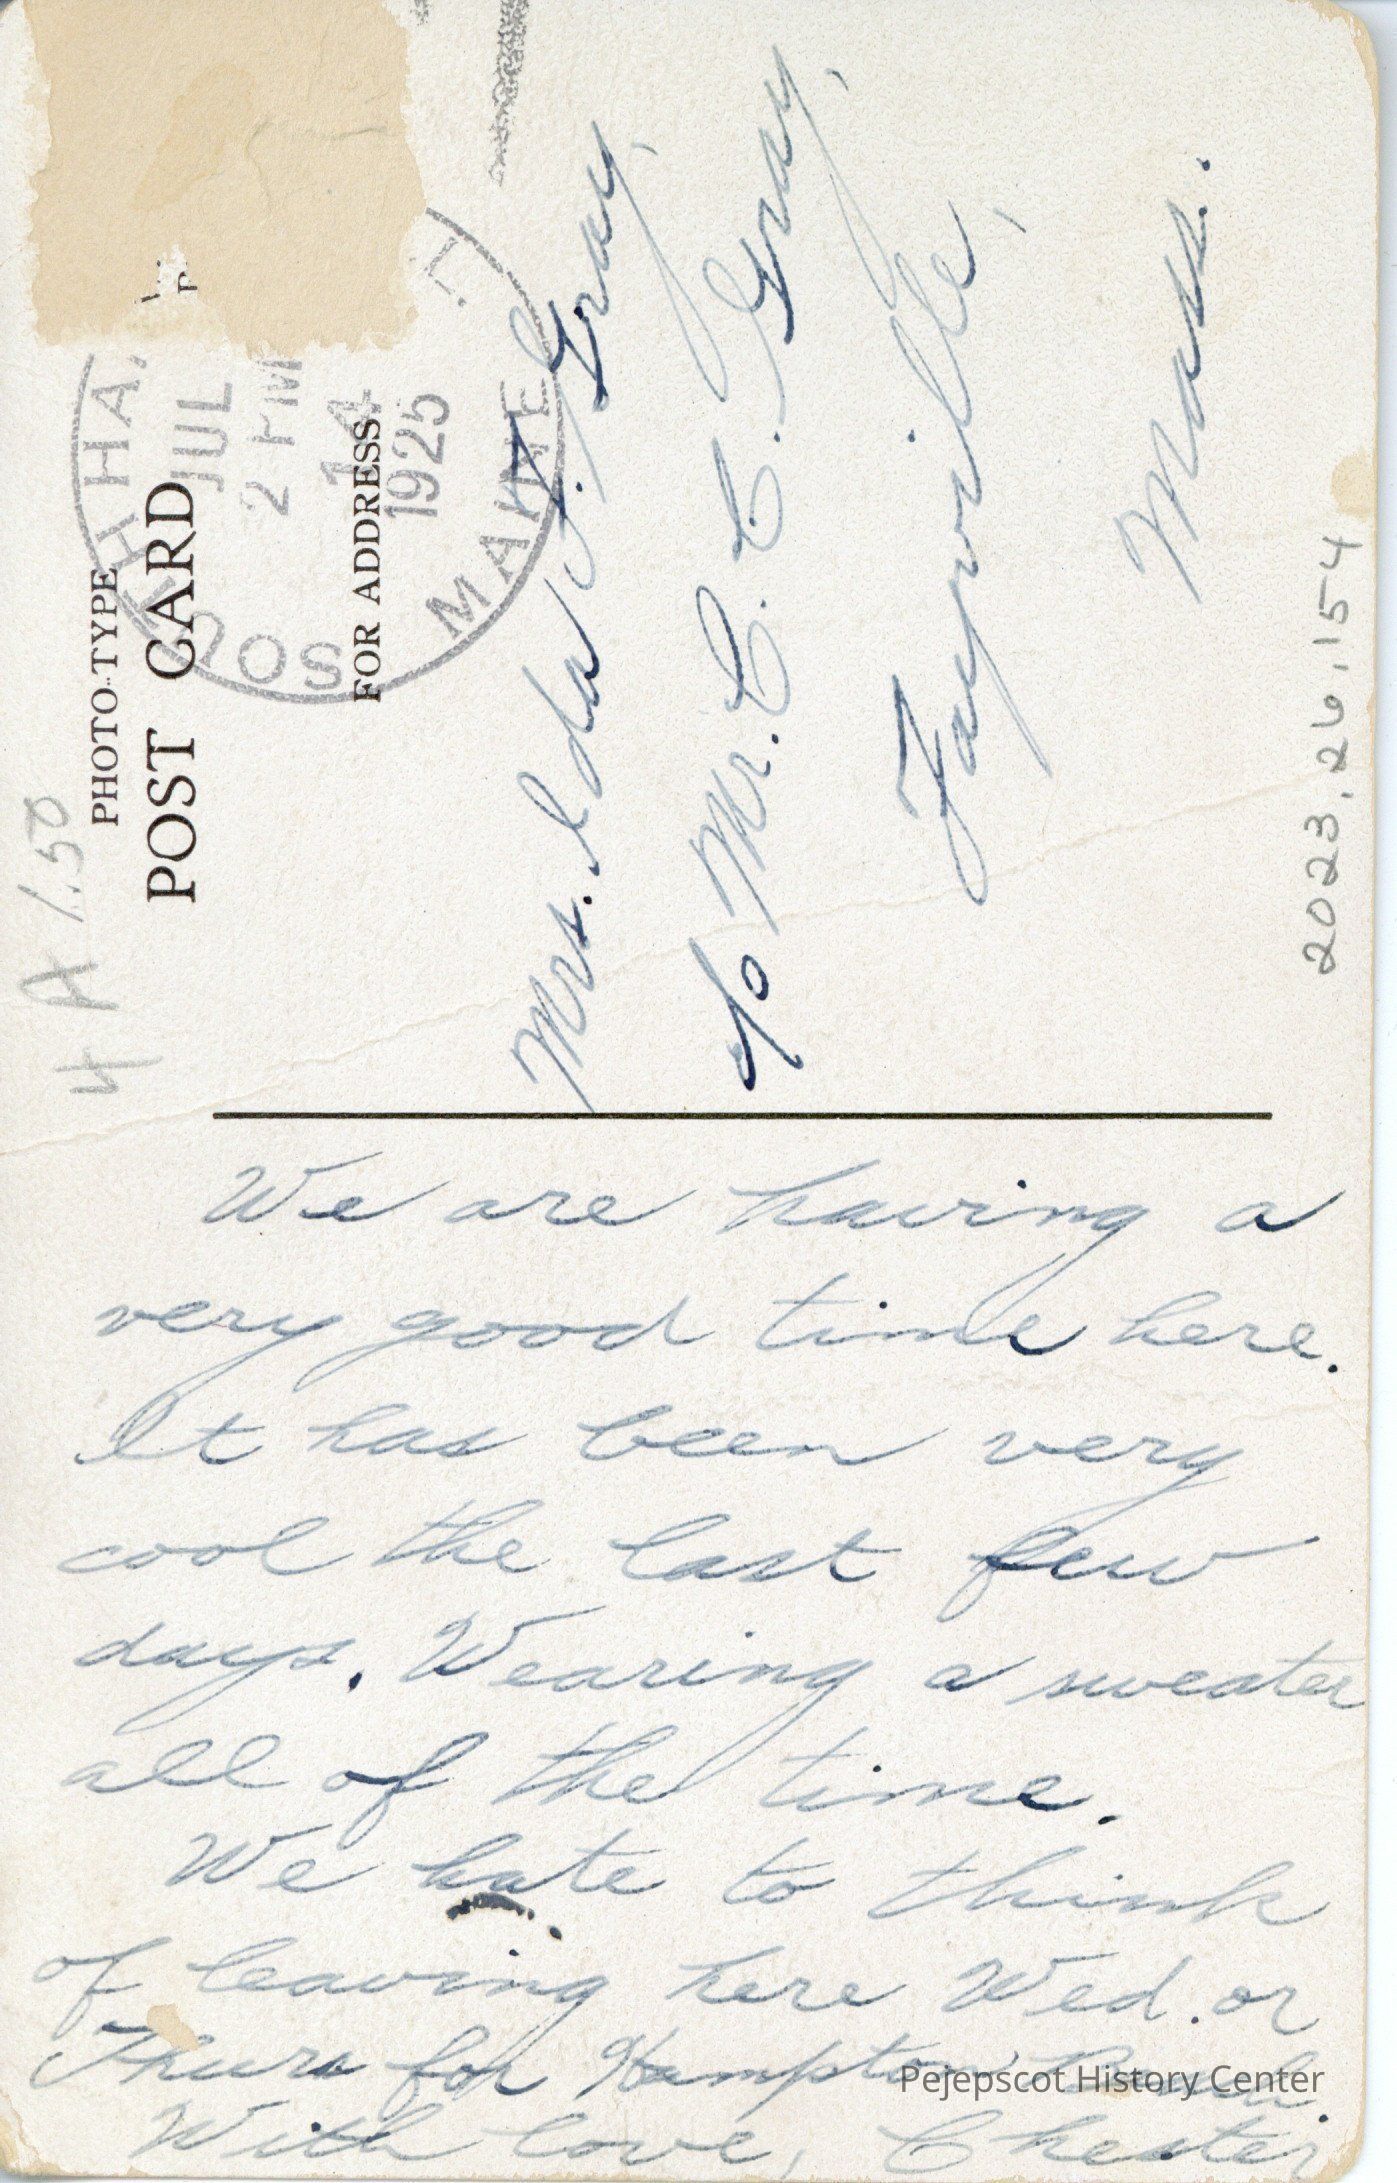 4 A 1.50
PHOTO-TYPE
POST CARD
FOR ADDRESS
SOUTH HA
JUL 14
2 PM
1925
MAINE
Mrs. Ida J. Gray,
c/o Mr. C. C. Gray,
Fayville,
Mass.
2023.26.154
We are having a
very good time here.
It has been very
cool the last few
days. Wearing a sweater
all of the time.
We hate to think
of leaving here Wed. or
Thurs for Hampton Beach.
With love, Chester
Pejepscot History Center